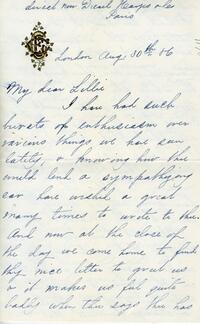 London Aug. 30th 06
My dear Lillie
I have had such
bursts of enthusiasm over
various things we have seen
lately, & knowing how the
would lend a sympathizing
ear have wished a great
many times to write to thee.
And now at the close of
the day we come home to find
thy nice letter to greet us
& it makes us feel quite
badly when thee says thee has